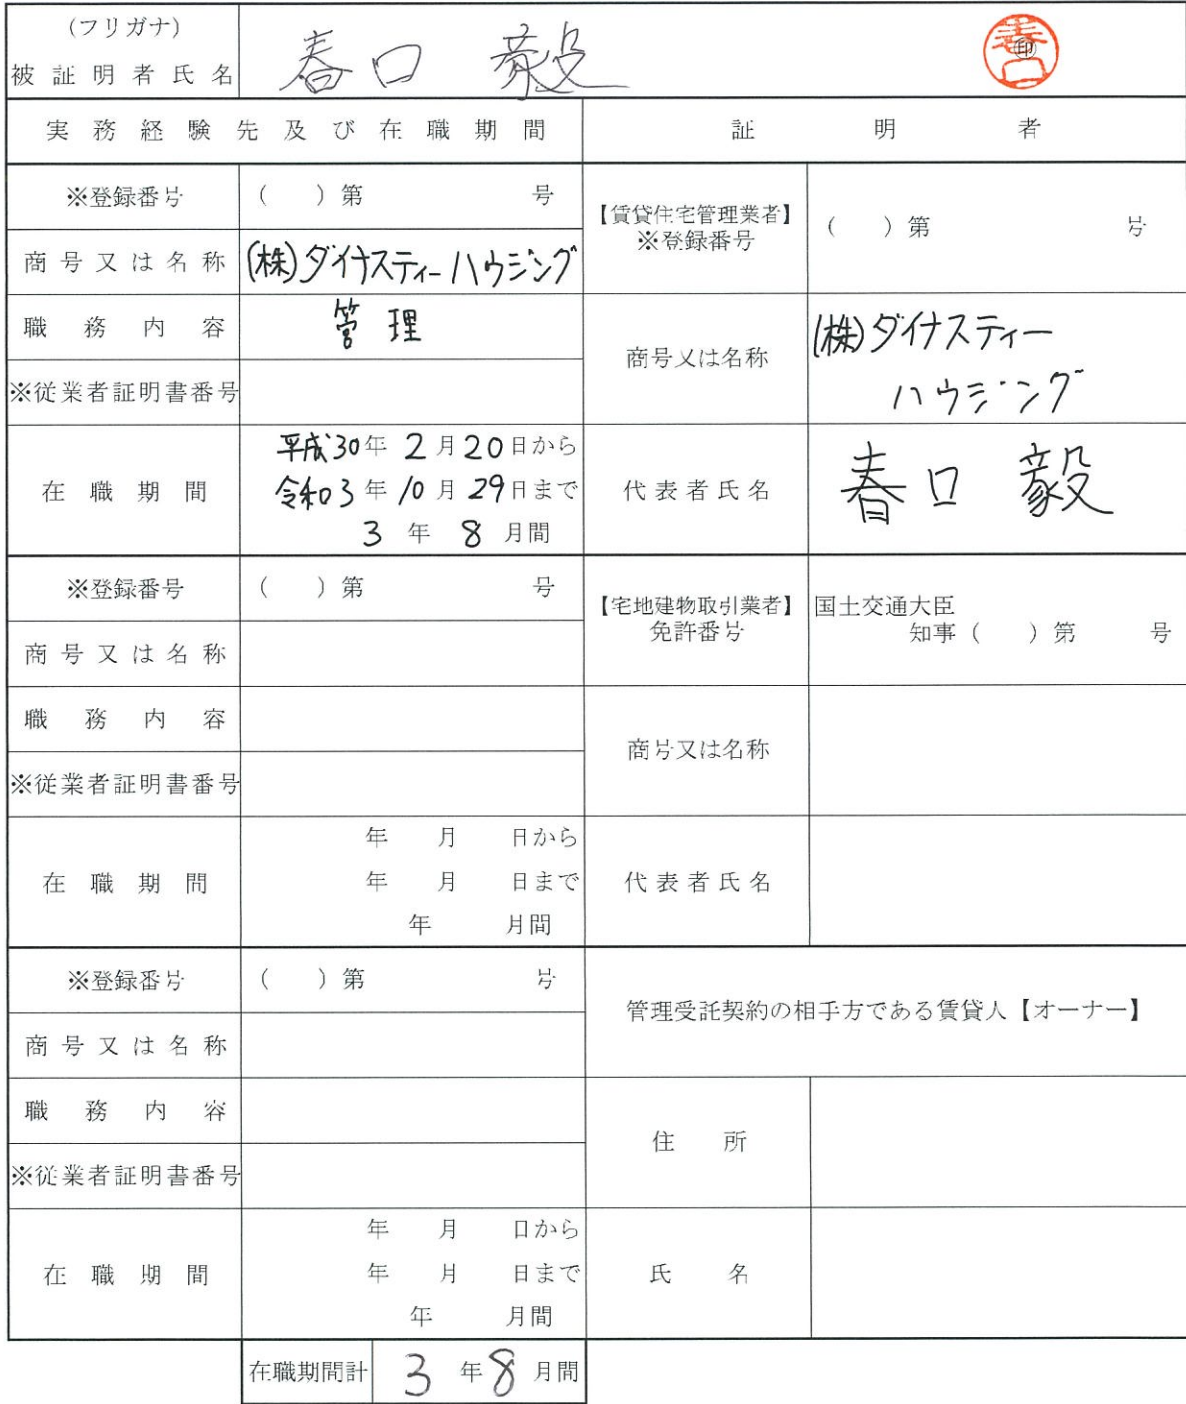 (フリガナ)
被証明者氏名
春口 毅
印
実務経験先及び在職期間
証明者
※登録番号
( )第 号
【賃貸住宅管理業者】
※登録番号
( )第 号
商号又は名称
(株)ダイナスティーハウジング
職務内容
管理
商号又は名称
(株)ダイナスティー
ハウジング
※従業者証明書番号
在職期間
平成30年 2月20日から
令和3年10月29日まで
3 年 8 月間
代表者氏名
春口 毅
※登録番号
( )第 号
【宅地建物取引業者】
免許番号
国土交通大臣
知事( )第 号
商号又は名称
職務内容
商号又は名称
※従業者証明書番号
在職期間
年 月 日から
年 月 日まで
年 月間
代表者氏名
※登録番号
( )第 号
管理受託契約の相手方である賃貸人【オーナー】
商号又は名称
職務内容
住所
※従業者証明書番号
在職期間
年 月 日から
年 月 日まで
年 月間
氏名
在職期間計
3 年 8 月間